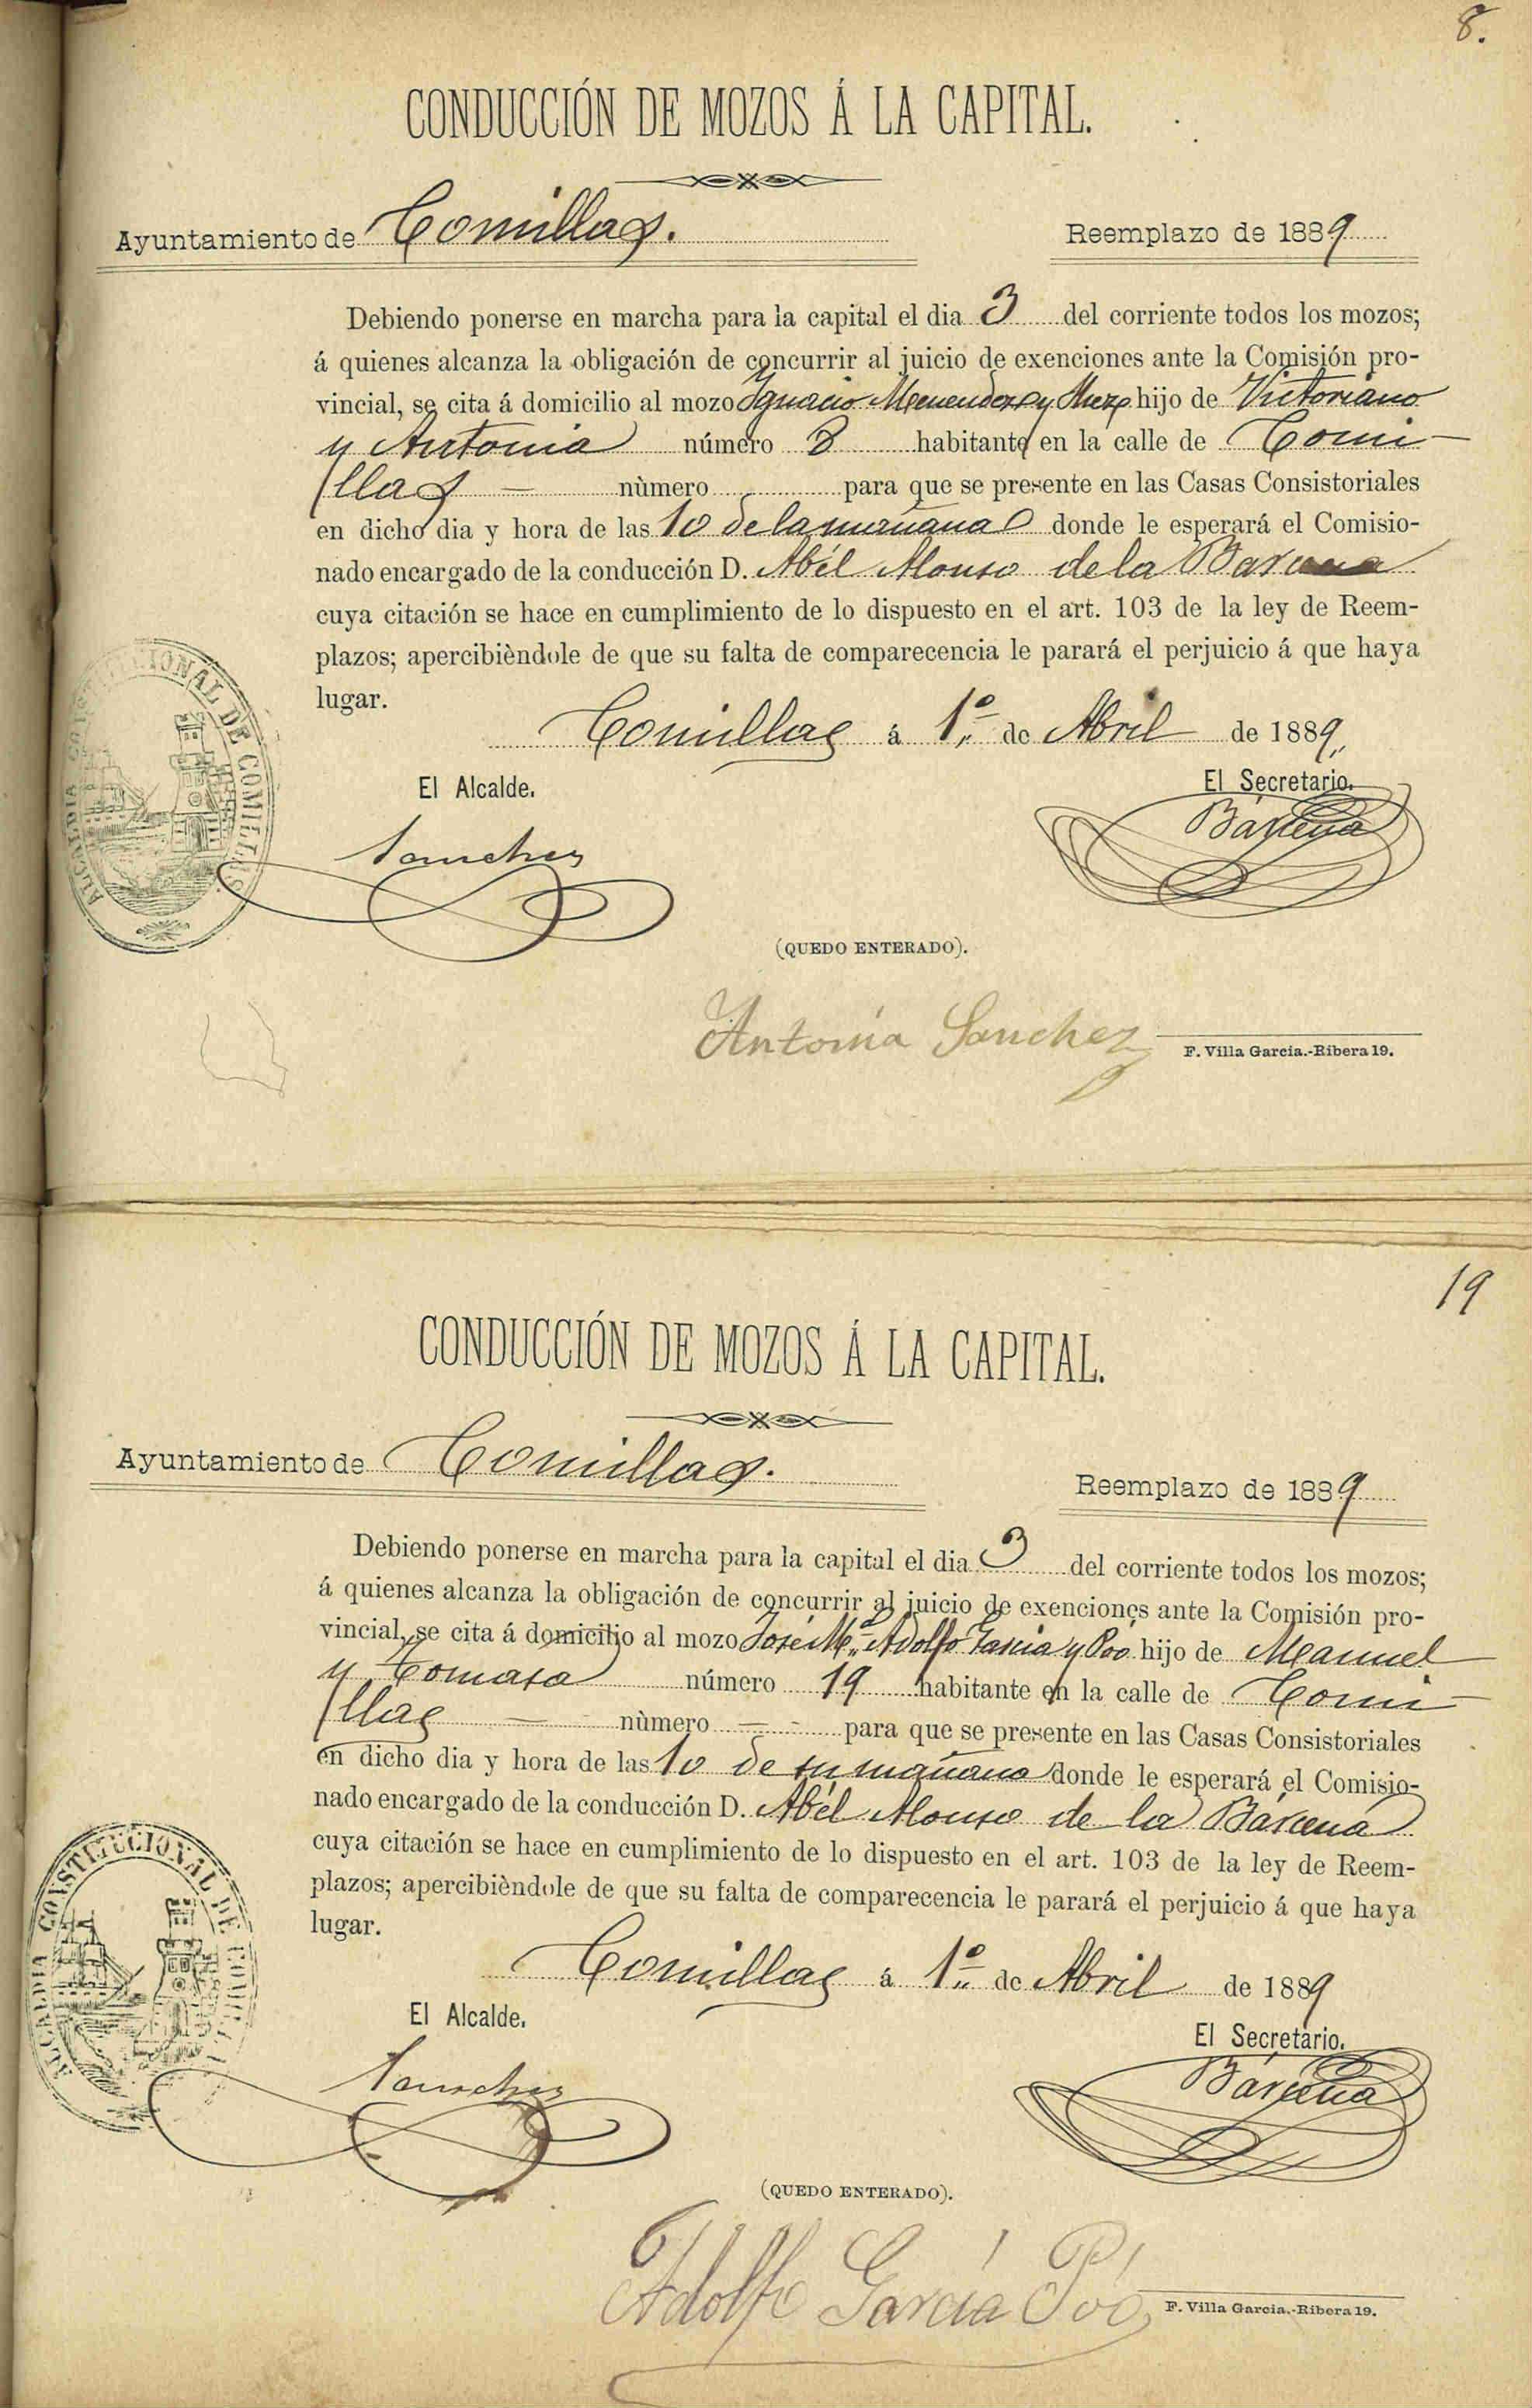 8.
CONDUCCIÓN DE MOZOS Á LA CAPITAL.
Ayuntamiento de Comillas.
Reemplazo de 1889
Debiendo ponerse en marcha para la capital el dia 3 del corriente todos los mozos;
á quienes alcanza la obligación de concurrir al juicio de exenciones ante la Comisión pro-
vincial, se cita á domicilio al mozo Ygnacio Menendez y hijo de Victoriano
y Antonia número 8 habitante en la calle de Comi-
llas - nùmero para que se presente en las Casas Consistoriales
en dicho dia y hora de las 10 de la mañana donde le esperará el Comisio-
nado encargado de la conducción D. Abél Alonso de la Barcena
cuya citación se hace en cumplimiento de lo dispuesto en el art. 103 de la ley de Reem-
plazos; apercibièndole de que su falta de comparecencia le parará el perjuicio á que haya
lugar.
Comillas á 1.º de Abril de 1889,
El Alcalde.
El Secretario.
Sanchez
Bárcena
ALCALDIA CONSTITUCIONAL DE COMILLAS
(QUEDO ENTERADO).
Antonia Sanchez
F. Villa Garcia.-Ribera 19.
19
CONDUCCIÓN DE MOZOS Á LA CAPITAL.
Ayuntamiento de Comillas.
Reemplazo de 1889
Debiendo ponerse en marcha para la capital el dia 3 del corriente todos los mozos;
á quienes alcanza la obligación de concurrir al juicio de exenciones ante la Comisión pro-
vincial, se cita á domicilio al mozo José M.ª Adolfo Garcia y Poó hijo de Manuel
y Tomasa número 19 habitante en la calle de Comi-
llas - nùmero - - para que se presente en las Casas Consistoriales
en dicho dia y hora de las 10 de su mañana donde le esperará el Comisio-
nado encargado de la conducción D. Abél Alonso de la Bárcena
cuya citación se hace en cumplimiento de lo dispuesto en el art. 103 de la ley de Reem-
plazos; apercibièndole de que su falta de comparecencia le parará el perjuicio á que haya
lugar.
Comillas á 1.º de Abril de 1889
El Alcalde.
El Secretario.
Sanchez
Bárcena
ALCALDIA CONSTITUCIONAL DE COMILLAS
(QUEDO ENTERADO).
Adolfo García Póo
F. Villa Garcia.-Ribera 19.